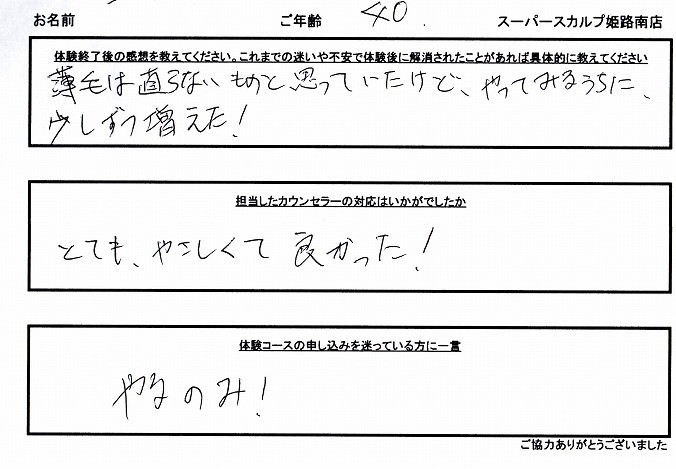 お名前 ご年齢 40. スーパースカルプ姫路南店
体験終了後の感想を教えてください。これまでの迷いや不安で体験後に解消されたことがあれば具体的に教えてください
薄毛は直らないものと思っていたけど、やってみるうちに、
少しずつ増えた!
担当したカウンセラーの対応はいかがでしたか
とても、やさしくて良かった!
体験コースの申し込みを迷っている方に一言
やるのみ!
ご協力ありがとうございました